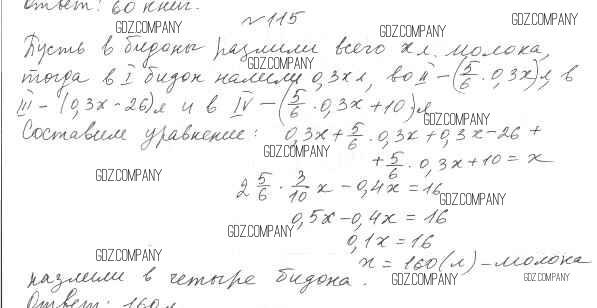 Ответ: 60 книг.
GDZ.COMPANY
N 115
GDZ.COMPANY GDZ.COMPANY GDZ.COMPANY
Пусть в бидоны разлили всего x л молока,
GDZ.COMPANY
тогда в I бидон налили 0,3x л, во II – (5/6 · 0,3x) л, в
III – (0,3x - 26) л и в IV – (5/6 · 0,3x + 10) л
GDZ.COMPANY
Составим уравнение: 0,3x + 5/6 · 0,3x + 0,3x - 26 +
GDZ.COMPANY
+ 5/6 · 0,3x + 10 = x
GDZ.COMPANY
2 5/6 · 3/10 x - 0,4x = 16
GDZ.COMPANY
0,5x - 0,4x = 16
GDZ.COMPANY
0,1x = 16
GDZ.COMPANY
x = 160 (л) – молока
разлили в четыре бидона.
GDZ.COMPANY GDZ.COMPANY
Ответ: 160 л